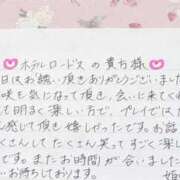 ホテルロードスの貴方様
日はお誘い頂きありがとうございまし
咲を気になって頂き、会いに来てくれ
も明るく楽しい方で、プレイでは
感じて頂き嬉しかったです。お話
たくさんして たくさん笑ってすごく楽し
です。またお時間が合いました
お待ちしております。